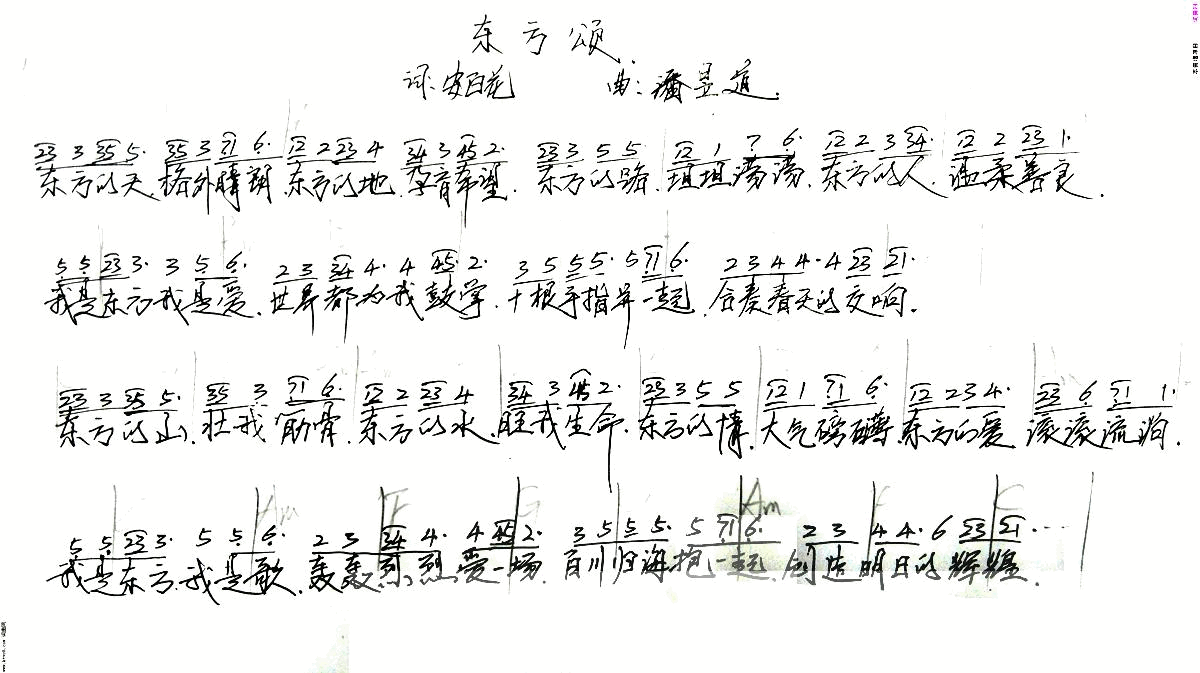 东方颂
词:安百花 曲:潘昱道.
23 3 35 5· 35 3 71 6· 12 2 23 4 34 3 45 2· 23 3 5 5 12 1 7 6· 12 2 3 34· 12 2 23 1·
东方的天,格外晴朗.东方的地.孕育希望.东方的路,坦坦荡荡,东方的人,温柔善良.
5 5 23 3· 3 5 6· 2 3 34 4· 4 45 2· 3 5 5 5· 5 71 6· 2 3 4 4· 4 23 21·
我是东方我是爱.世界都为我鼓掌.十根手指举一起,合奏春天的交响.
23 3 35 5· 35 3 71 6· 12 2 23 4 34 3 45 2· 23 3 5 5 12 1 71 6· 12 2 3 4· 23 6 71 1·
东方的山,壮我筋骨.东方的水,旺我生命.东方的情,大气磅礴,东方的爱,滚滚流淌.
Am F G Am F C
5 5 23 3· 5 5 6· 2 3 34 4· 4 45 2· 3 5 5 5· 5 71 6· 2 3 4 4· 6 23 21···
我是东方,我是歌,轰轰烈烈爱一场.百川归海抱一起,创造明日的辉煌.